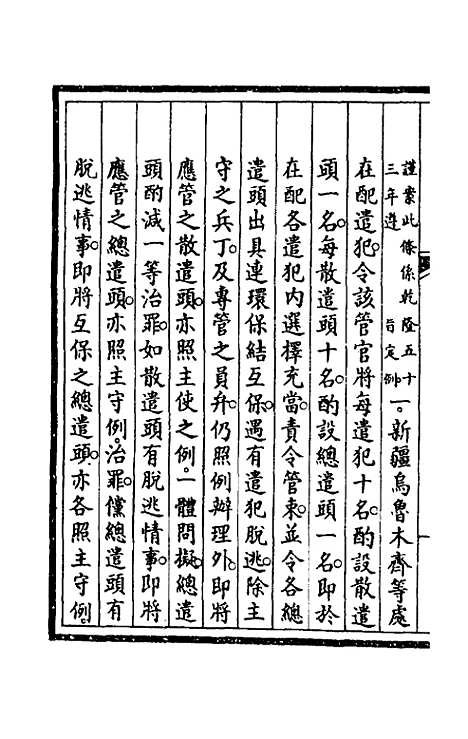 謹案此條係乾隆五十
三年遵　旨定例一。新疆烏魯木齊等處
在配遣犯。令該管官將每遣犯十名。酌設散遣
頭一名。每散遣頭十名。酌設總遣頭一名。即於
在配各遣犯內選擇充當。責令管束。並令各總
遣頭出具連環保結互保。遇有遣犯脫逃。除主
守之兵丁。及專管之員弁。仍照例辦理外。即將
應管之散遣頭。亦照主使之例。一體問擬。總遣
頭酌減一等治罪。如散遣頭有脫逃情事。即將
應管之總遣頭。亦照主守例。治罪。儻總遣頭有
脫逃情事。即將互保之總遣頭。亦各照主守例。